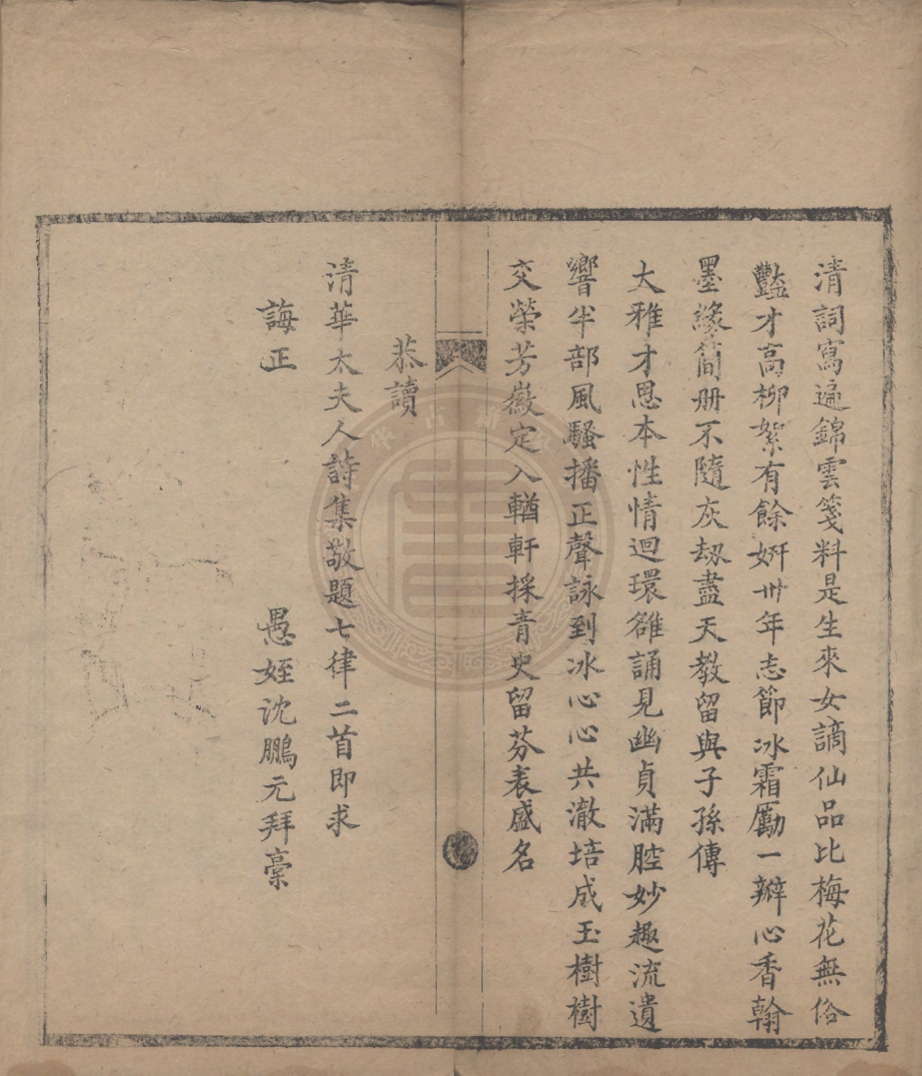 清詞寫遍錦雲箋料是生來女謫仙品比梅花無俗
豔才高柳絮有餘妍卅年志節冰霜勵一瓣心香翰
墨緣簡册不隨灰刼盡天教留與子孫傳
大雅才思本性情迴環雒誦見幽貞滿腔妙趣流遺
響半部風騷播正聲詠到冰心心共澈培成玉樹樹
交榮芳徽定入輶軒採青史留芬表盛名
恭讀
清華太夫人詩集敬題七律二首即求
誨正
愚姪沈鵬元拜稾